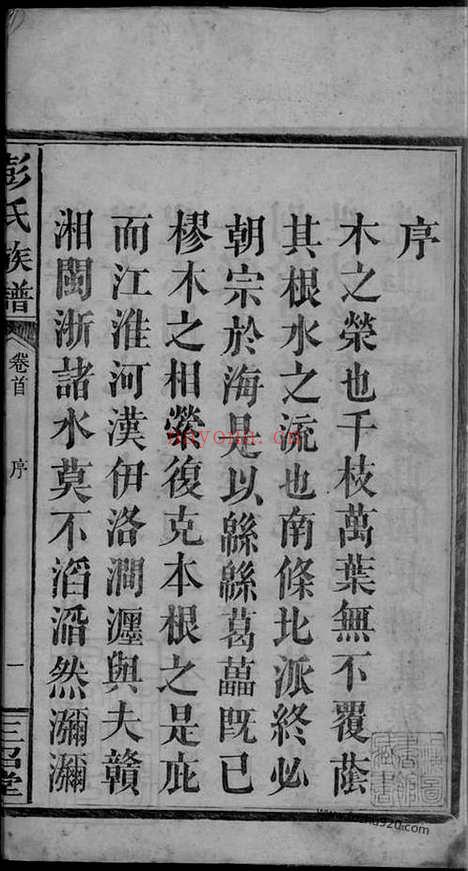 序
木之榮也千枝萬葉無不覆蔭
其根水之流也南條北派終必
朝宗於海是以緜緜葛藟既已
樛木之相縈復克本根之是庇
而江淮河漢伊洛澗瀍與夫贛
湘閩浙諸水莫不滔滔然瀰瀰
彭氏族譜
卷首
序
一
三召堂